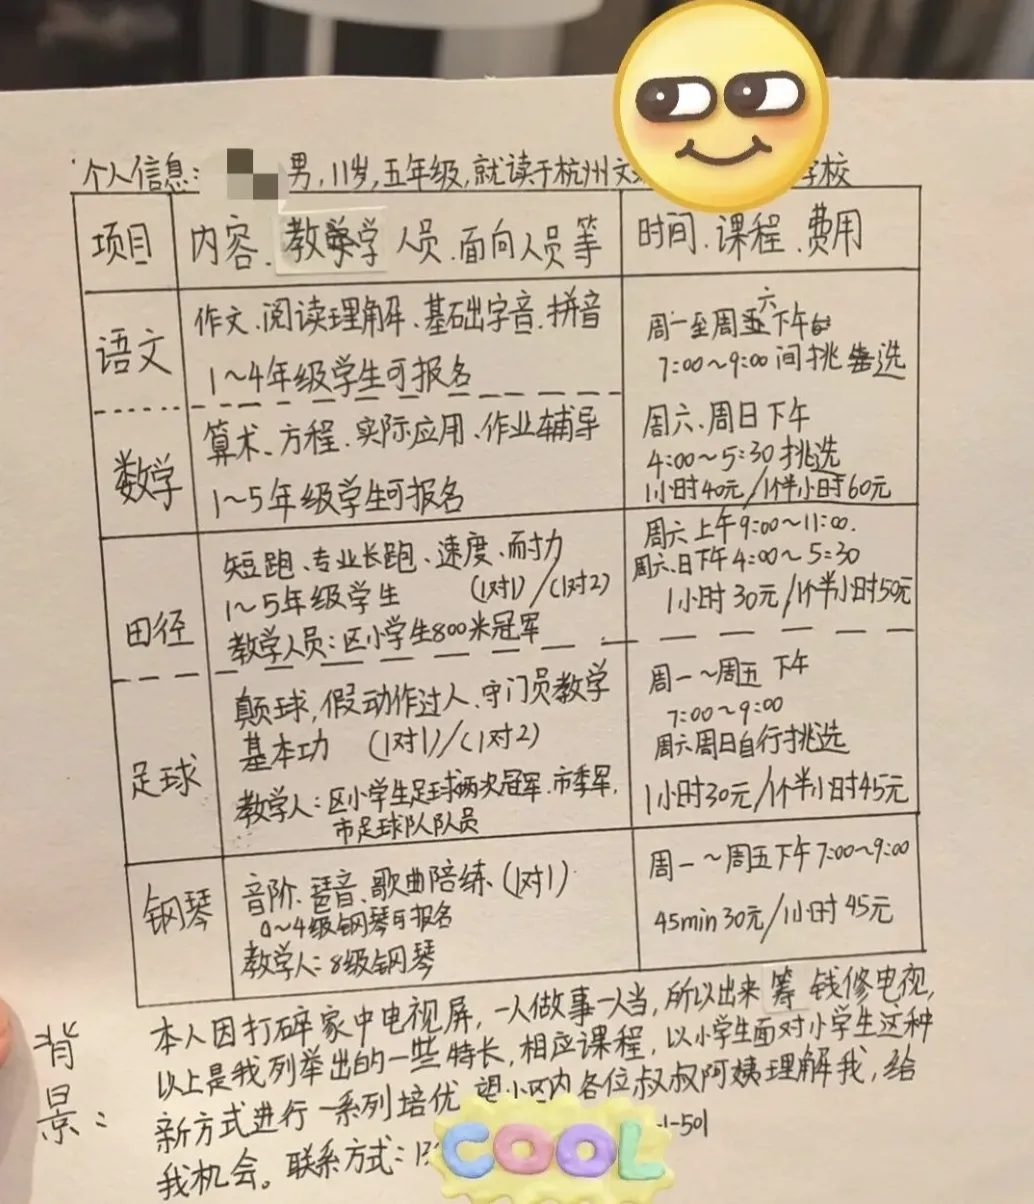 个人信息: 男,11岁,五年级,就读于杭州文 学校
项目 内容、教学人员、面向人员等 时间、课程、费用
语文 作文、阅读理解、基础字音、拼音
1~4年级学生可报名
周一至周六下午
7:00~9:00间挑选
数学 算术、方程、实际应用、作业辅导
1~5年级学生可报名
周六、周日下午
4:00~5:30挑选
1小时40元/1个半小时60元
田径 短跑、专业长跑、速度、耐力
1~5年级学生 (1对1)/(1对2)
教学人员:区小学生800米冠军
周六上午9:00~11:00.
周六、日下午4:00~5:30
1小时30元/1个半小时50元
足球 颠球,假动作过人、守门员教学
基本功 (1对1)/(1对2)
教学人:区小学生足球两次冠军、市季军,
市足球队队员
周一~周五 下午
7:00~9:00
周六周日自行挑选
1小时30元/1个半小时45元
钢琴 音阶、琶音、歌曲陪练、(1对1)
0~4级钢琴可报名
教学人:8级钢琴
周一~周五下午7:00~9:00
45min30元/1小时45元
背景:
本人因打碎家中电视屏,一人做事一人当,所以出来筹钱修电视,
以上是我列举出的一些特长,相应课程,以小学生面对小学生这种
新方式进行一系列培优 望小区内各位叔叔阿姨理解我,给
我机会。联系方式:13 -1-501
COOL